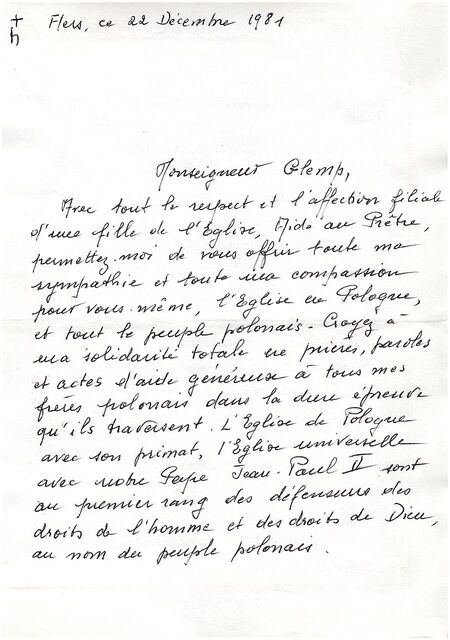 Flers, ce 22 Décembre 1981
Monseigneur Glemp,
Avec tout le respect et l'affection filiale
d'une fille de l'Eglise, Aide au Prêtre,
permettez-moi de vous offrir toute ma
sympathie et toute ma compassion
pour vous-même, l'Eglise en Pologne,
et tout le peuple polonais. Croyez à
ma solidarité totale en prières, paroles
et actes d'aide généreuse à tous mes
frères polonais dans la dure épreuve
qu'ils traversent. L'Eglise de Pologne
avec son primat, l'Eglise universelle
avec notre Pape Jean-Paul II sont
au premier rang des défenseurs des
droits de l'homme et des droits de Dieu,
au nom du peuple polonais.